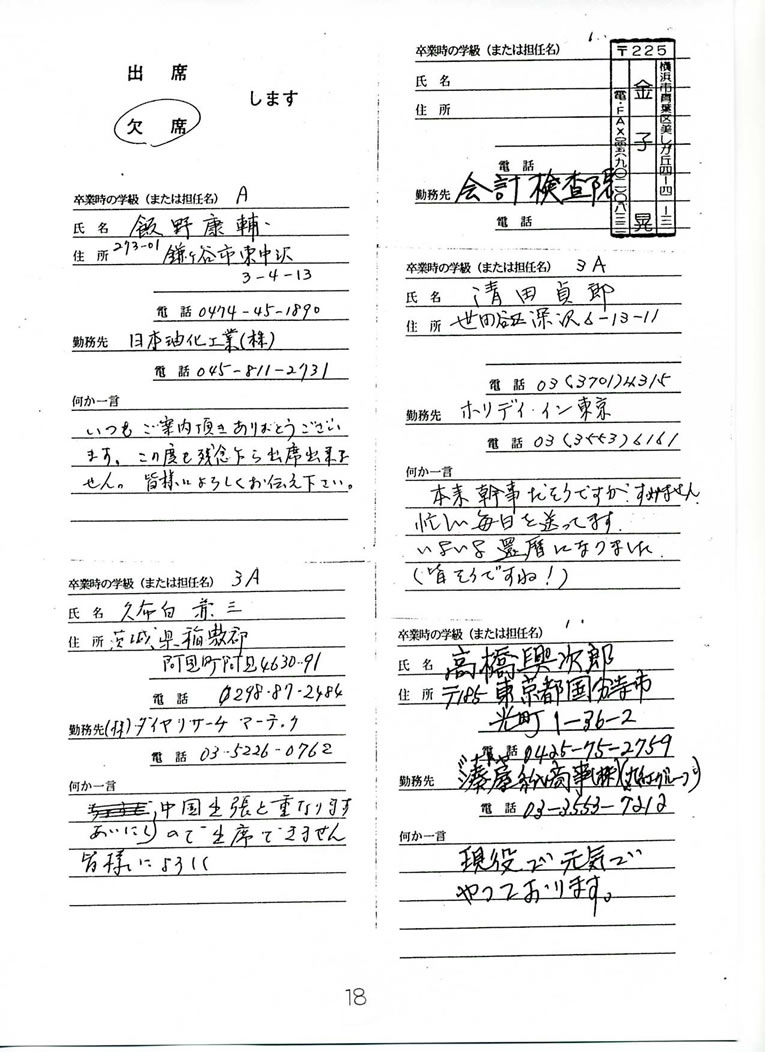 出 席
欠 席
します
卒業時の学級（または担任名） A
氏 名 飯野康輔
住 所 273-01 鎌ヶ谷市東中沢
3-4-13
電 話 0474-45-1890
勤務先 日本油化工業(株)
電 話 045-811-2731
何か一言
いつもご案内頂きありがとうござい
ます。この度も残念乍ら出席出来ま
せん。皆様によろしくお伝え下さい。
卒業時の学級（または担任名） 3A
氏 名 久布白 兼三
住 所 茨城県稲敷郡
阿見町阿見4630-91
電 話 0298-87-2484
勤務先 (株)ダイヤリサーチ マーテック
電 話 03-5226-0762
何か一言
中国出張と重なります
あいにく ので出席できません
皆様によろしく
卒業時の学級（または担任名）
氏 名
住 所
電 話
勤務先 会計検査院
電 話
〒225
横浜市青葉区美しが丘四-四-一三
金子 晃
電・FAX
卒業時の学級（または担任名） 3A
氏 名 清田貞郎
住 所 世田谷区深沢6-13-11
電 話 03(3701)4315
勤務先 ホリディ・イン東京
電 話 03(3553)6161
何か一言
本来幹事だそうですが、すみません
忙しい毎日を送ってます.
いよいよ還暦になりました.
(皆そうですね!)
卒業時の学級（または担任名）
氏 名 高橋興次郎
住 所 〒185 東京都国分寺市
光町1-36-2
電 話 0425-75-2759
勤務先
電 話 03-3553-7212
何か一言
現役で元気で
やっております。
18